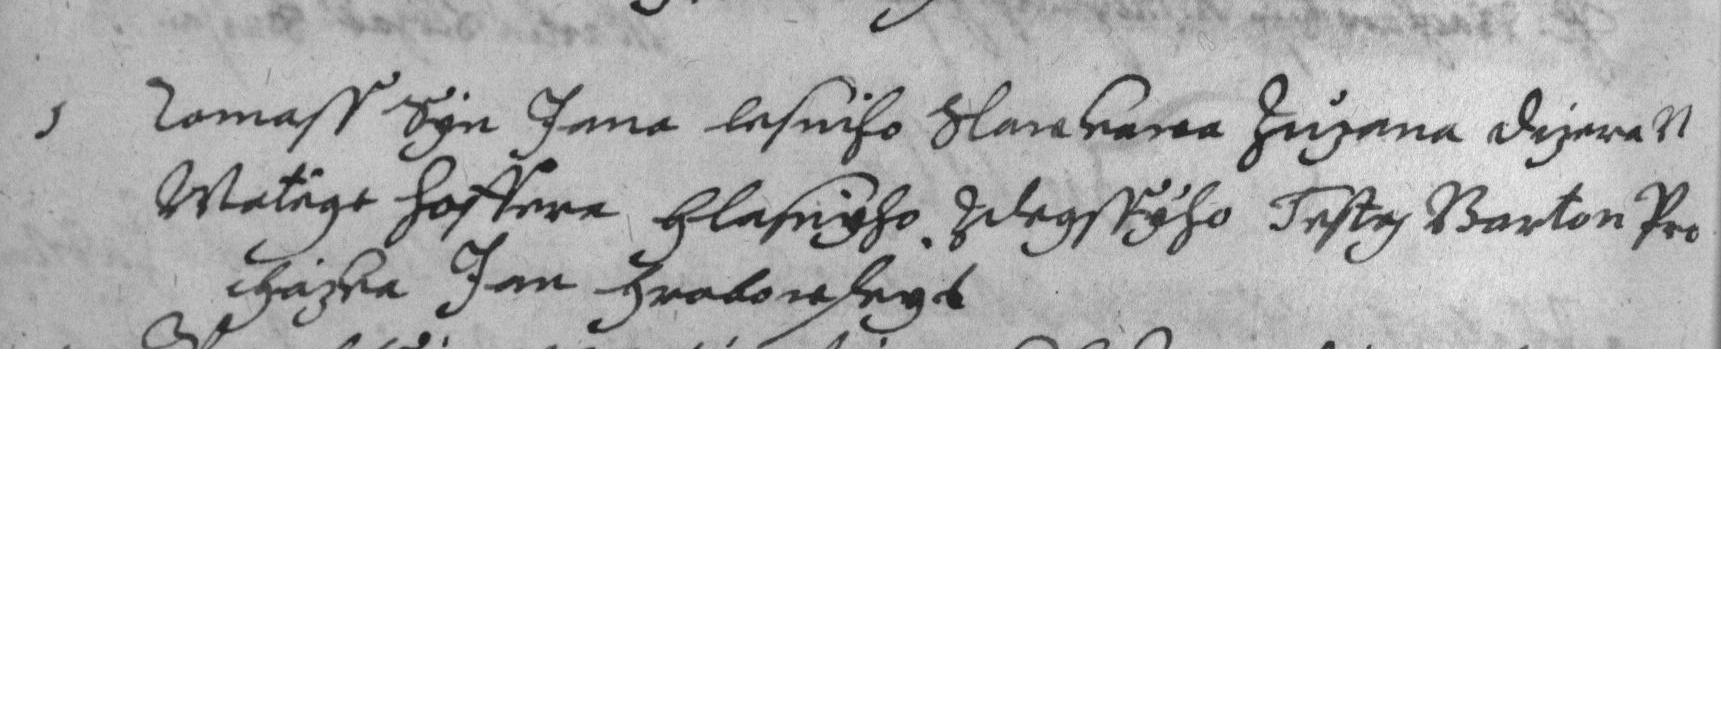 5 Tomass Syn Jana lesniho Slawkowa Zuzana dczera N
Matige hoffera hlasnyho Zdegssyho Testes Barton Pro
chazka Jan Hrabowsky